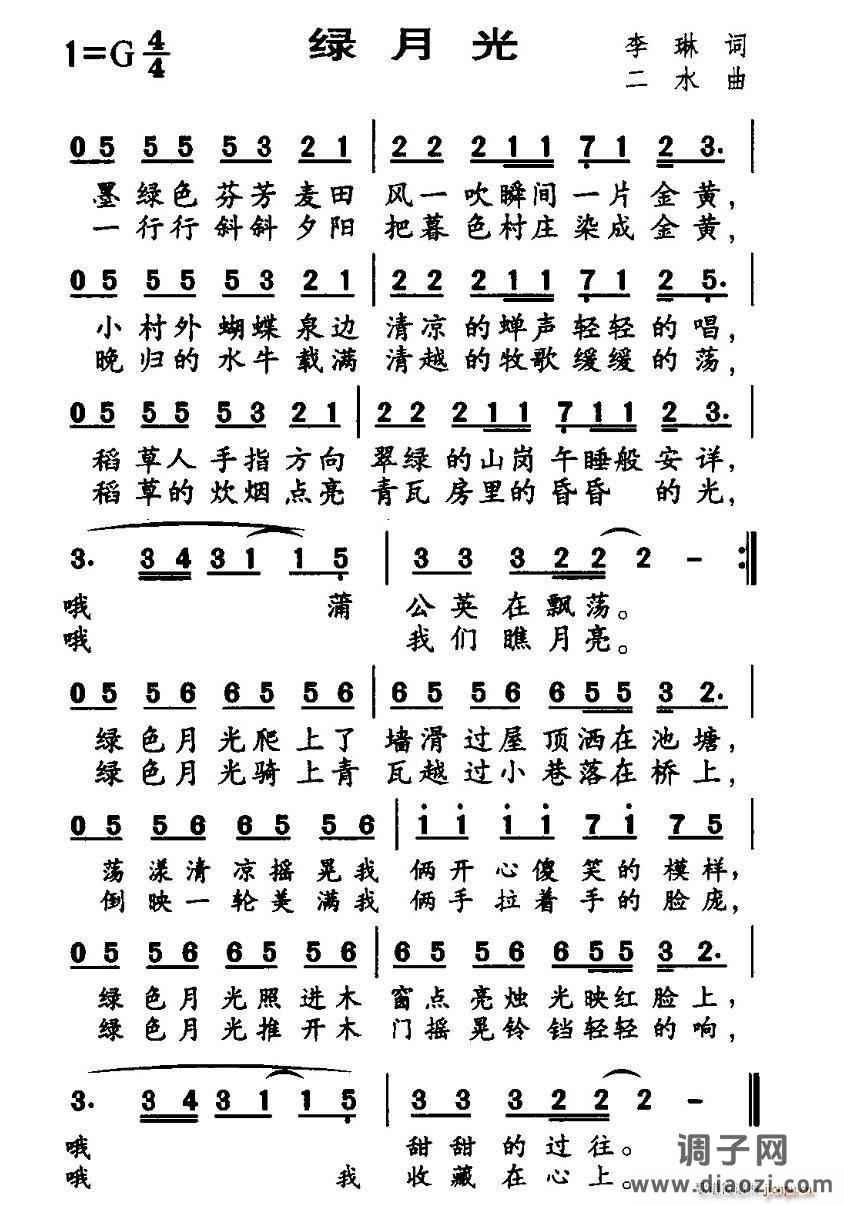 1=G 4/4 绿月光 李琳 词
二水 曲
0 5 5 5 5 3 2 1 | 2 2 2 1 1 7̣ 1 2 3. |
墨绿色芬芳麦田 风一吹瞬间一片金黄，
一行行斜斜夕阳 把暮色村庄染成金黄，
0 5 5 5 5 3 2 1 | 2 2 2 1 1 7̣ 1 2 5̣. |
小村外蝴蝶泉边 清凉的蝉声轻轻的唱，
晚归的水牛载满 清越的牧歌缓缓的荡，
0 5 5 5 5 3 2 1 | 2 2 2 1 1 7̣ 1 1 2 3. |
稻草人手指方向 翠绿的山岗午睡般安详，
稻草的炊烟点亮 青瓦房里的昏昏 的光，
3. 3 4 3 1 1 5̣ | 3 3 3 2 2 2 - :||
哦 蒲 公英在飘荡。
哦 我们瞧月亮。
0 5 5 6 6 5 5 6 | 6 5 5 6 6 5 5 3 2. |
绿色月光爬上了 墙滑过屋顶洒在池塘，
绿色月光骑上青 瓦越过小巷落在桥上，
0 5 5 6 6 5 5 6 | i i i i 7 i 7 5 |
荡漾清凉摇晃我 俩开心傻笑的模样，
倒映一轮美满我 俩手拉着手的脸庞，
0 5 5 6 6 5 5 6 | 6 5 5 6 6 5 5 3 2. |
绿色月光照进木 窗点亮烛光映红脸上，
绿色月光推开木 门摇晃铃铛轻轻的响，
3. 3 4 3 1 1 5̣ | 3 3 3 2 2 2 - ||
哦 甜甜的过往。
哦 我 收藏在心上。
调子网
www.diaozi.com